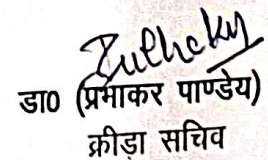 डा० (प्रभाकर पाण्डेय)
क्रीड़ा सचिव